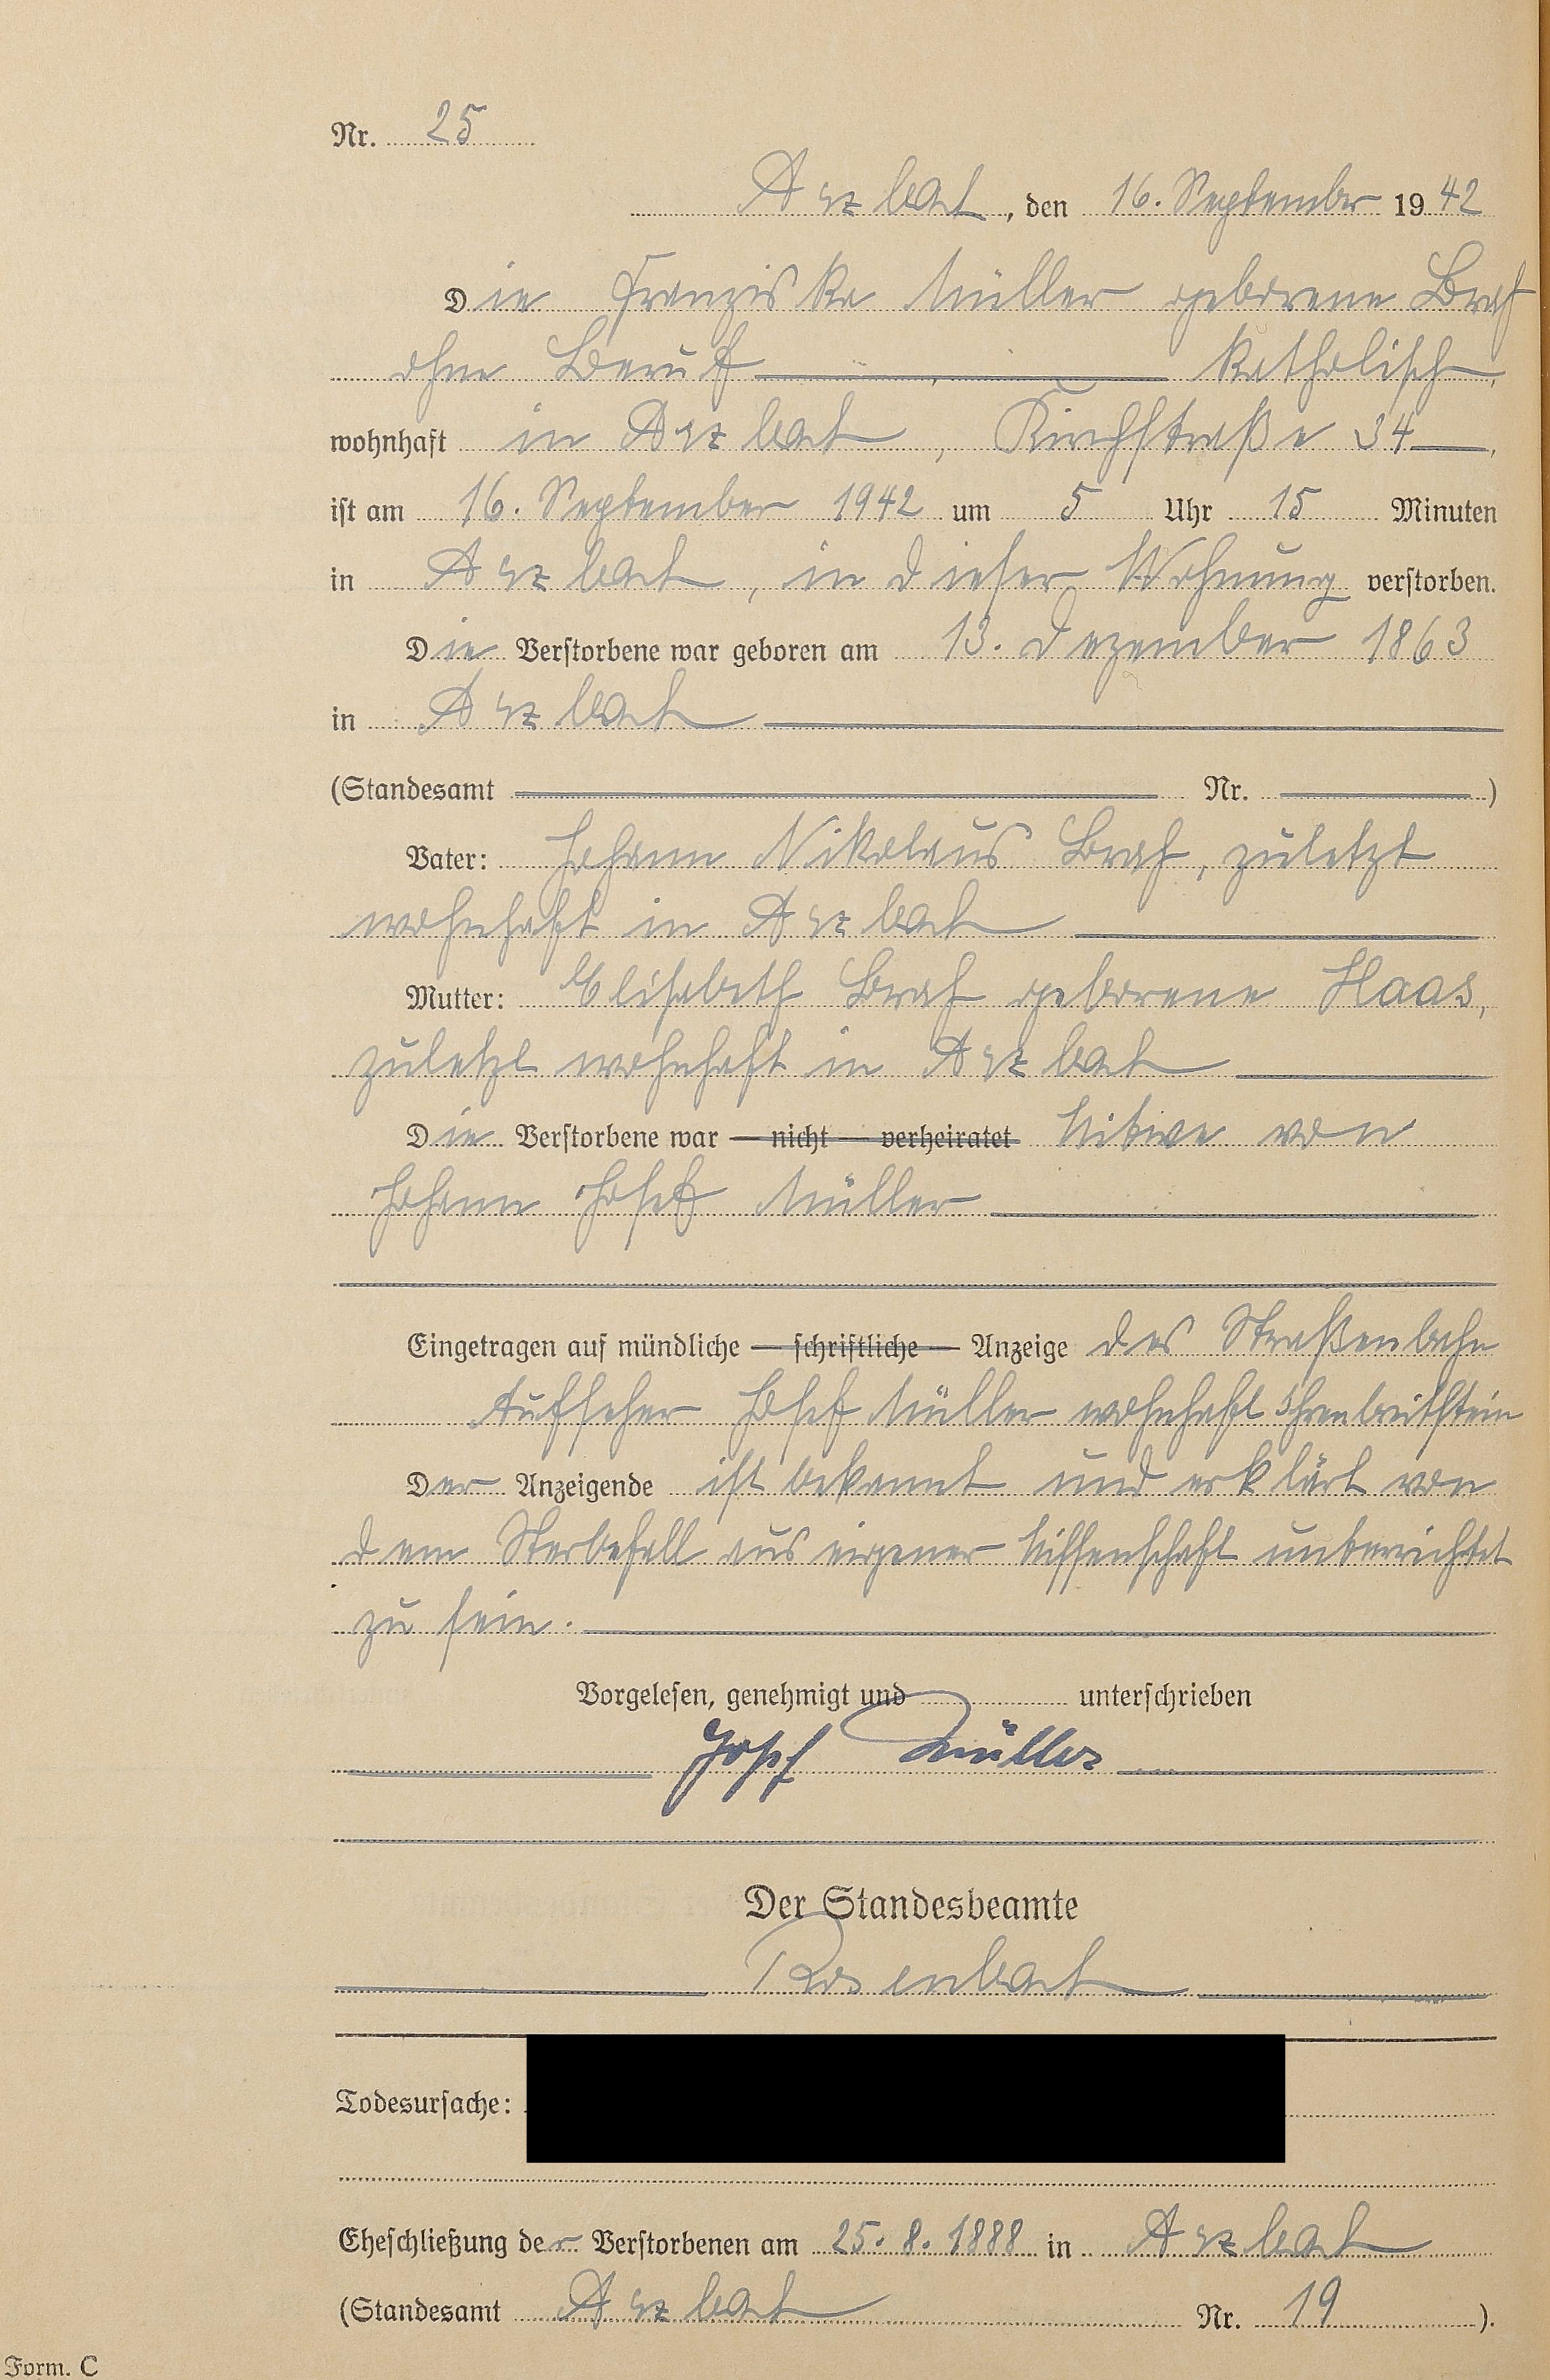 Nr. 25
Arzbach, den 16. September 1942
Die Franziska Müller geborene Graf
ohne Beruf katholisch,
wohnhaft in Arzbach, Kirchstraße 34,
ist am 16. September 1942 um 5 Uhr 15 Minuten
in Arzbach, in dieser Wohnung verstorben.
Die Verstorbene war geboren am 13. Dezember 1863
in Arzbach
(Standesamt Nr. )
Vater: Johann Nikolaus Graf, zuletzt
wohnhaft in Arzbach
Mutter: Elisabeth Graf geborene Haas,
zuletzt wohnhaft in Arzbach
Die Verstorbene war — nicht — verheiratet Witwe von
Johann Josef Müller
Eingetragen auf mündliche — schriftliche — Anzeige des Straßenbahn
Aufseher Josef Müller wohnhaft Ehrenbreitstein
Der Anzeigende ist bekannt und erklärt von
dem Sterbefall aus eigener Wissenschaft unterrichtet
zu sein.
Vorgelesen, genehmigt und unterschrieben
Josef Müller
Der Standesbeamte
Rosenbach
Todesursache:
Eheschließung der Verstorbenen am 25. 8. 1888 in Arzbach
(Standesamt Arzbach Nr. 19 ).
Form. C